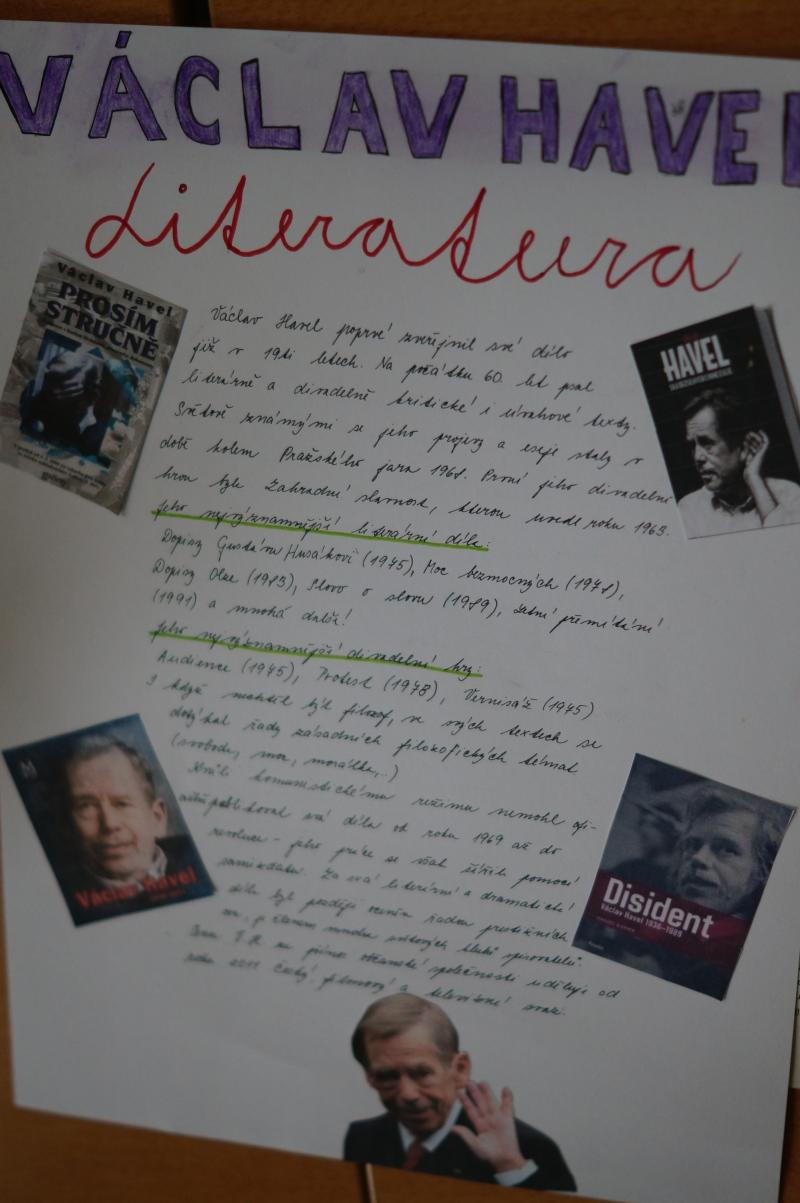 VÁCLAV HAVEL
Literatura
Václav Havel
PROSÍM
STRUČNĚ
HAVEL
Václav Havel poprvé zveřejnil své dílo
již v 19ti letech. Na počátku 60. let psal
literárně a divadelně kritické i úvahové texty.
Světově známými se jeho projevy a eseje staly v
době kolem Pražského jara 1968. První jeho divadelní
hrou byla Zahradní slavnost, kterou uvedl roku 1963.
Jeho nejvýznamnější literární díla:
Dopisy Gustávu Husákovi (1975), Moc bezmocných (1978),
Dopisy Olze (1983), Slovo o slovu (1989), Letní přemítání
(1991) a mnohá další!
Jeho nejvýznamnější divadelní hry:
Audience (1975), Protest (1978), Vernisáž (1975)
I když nechtěl být filozof, ve svých textech se
dotýkal řady zásadních filozofických témat
(svoboda, moc, morálka,..)
Kvůli komunistickému režimu nemohl ofi-
publikovat svá díla od roku 1969 až do
revoluce - jeho práce se však šířila pomocí
samizdatu. Za svá literární a dramatická
díla byl později oceněn řadou prestižních
členem mnoha světových klubů spisovatelů.
Cenu za přínos občanské společnosti uděluje od
roku 2011 Český filmový a televizní svaz.
Václav Havel
Disident
Václav Havel 1936–1989